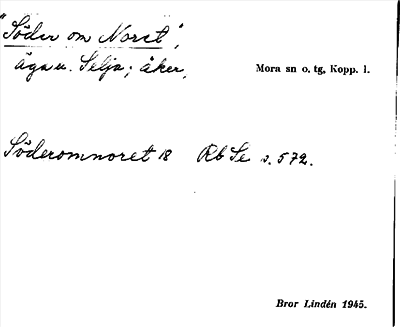 "Söder om Noret",
äga u. Selja; åker,
Mora sn o. tg, Kopp. l.
Söderomnoret 18 Rb Se s. 572.
Bror Lindén 1945.